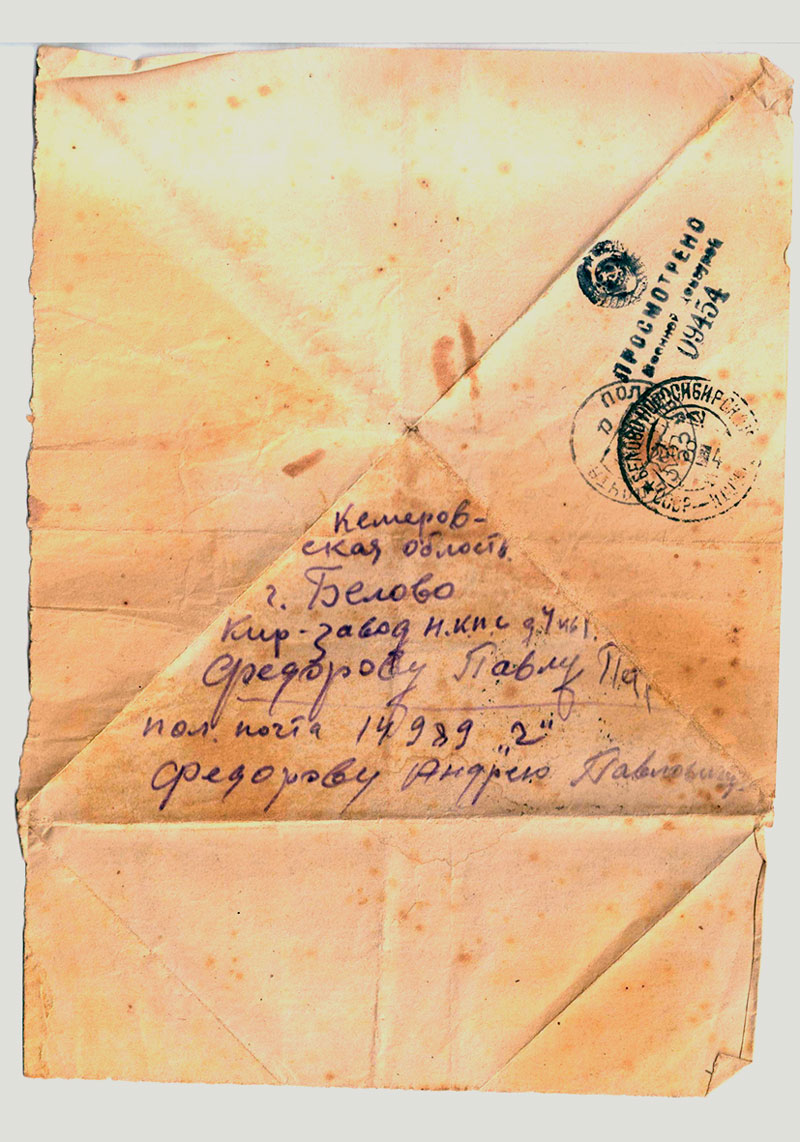 ПРОСМОТРЕНО
Военной Цензурой
09454
ПОЛ
БЕЛОВО НОВОСИБИРСК
СССР
Кемеров-
ская область
г. Белово
Кир-завод
Федорову Павлу Пет
пол. почта 14989 "г"
Федорову Андрею Павловичу